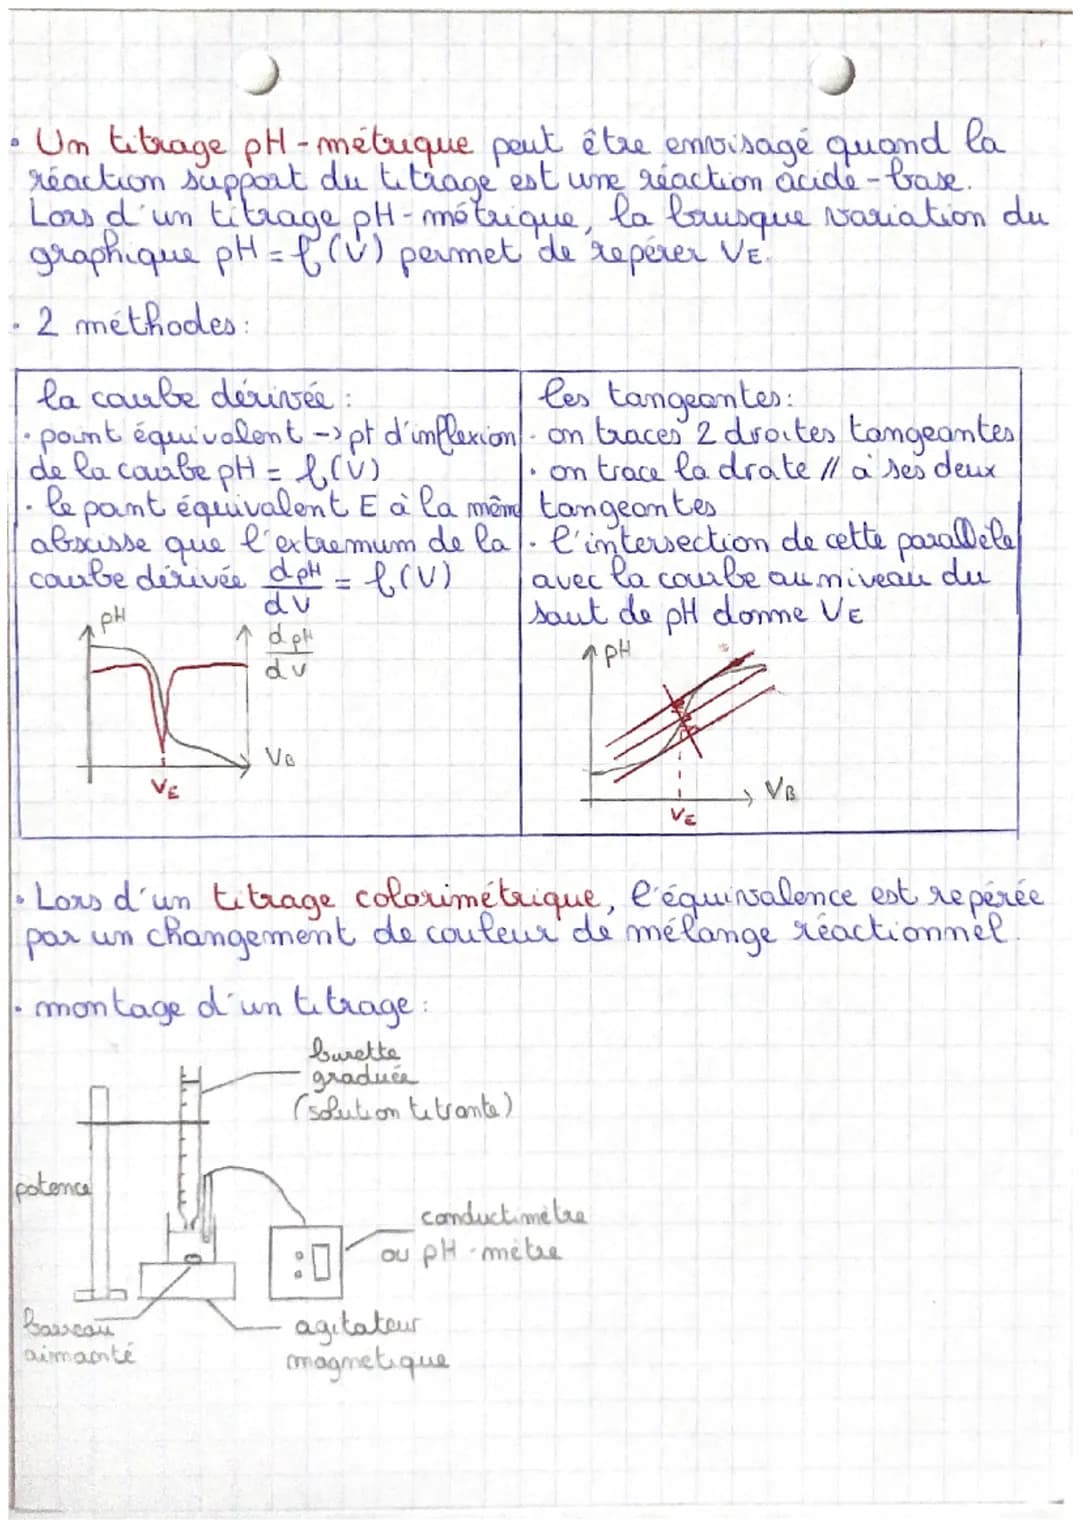 • Un titrage pH-métrique peut être envisagé quand la
réaction support du titrage est une réaction acide-base.
Lors d'un titrage pH-métrique, la brusque variation du
graphique pH = f(V) permet de repérer VE.
• 2 méthodes:
la courbe dérivée :
• point équivalent -> pt d'inflexion
de la courbe pH = f(V)
• le point équivalent E à la même
abscisse que l'extremum de la
courbe dérivée dpH/dV = f(V)
pH
dpH
dV
VB
VE
les tangeantes:
• on traces 2 droites tangeantes
• on trace la droite // à ses deux
tangeantes
• l'intersection de cette parallèle
avec la courbe au niveau du
saut de pH donne VE
pH
VB
VE
• Lors d'un titrage colorimétrique, l'équivalence est repérée
par un changement de couleur de mélange réactionnel.
• montage d'un titrage:
burette
graduée
(solution titrante)
potence
conductimètre
ou pH-mètre
barreau
aimanté
agitateur
magnetique